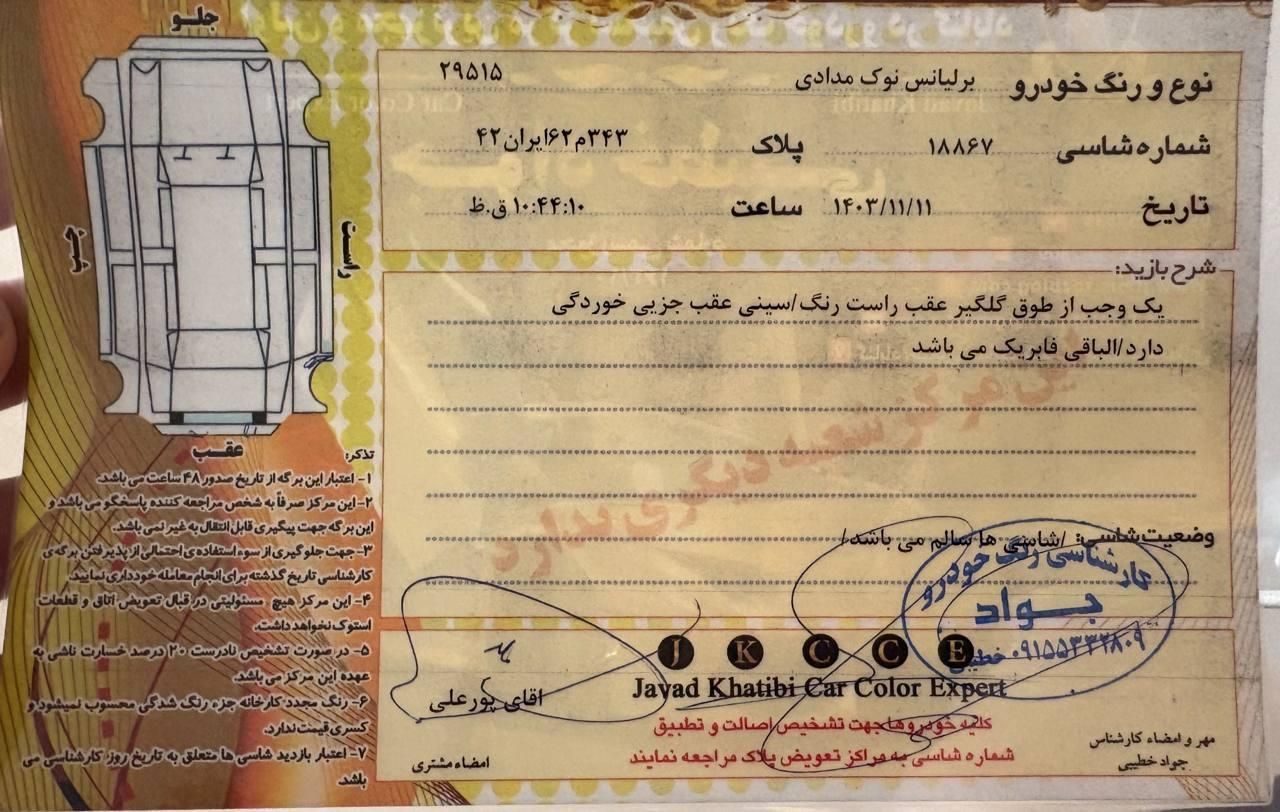 جلو
راست
چپ
عقب
نوع و رنگ خودرو برلیانس نوک مدادی ۲۹۵۱۵
شماره شاسی ۱۸۸۶۷ پلاک ۳۴۳م۶۲ایران۴۲
تاریخ ۱۴۰۳/۱۱/۱۱ ساعت ۱۰:۴۴:۱۰ ق.ظ
شرح بازید:
یک وجب از طوق گلگیر عقب راست رنگ/سینی عقب جزیی خوردگی
دارد/الباقی فابریک می باشد
این مرکز شعبه دیگری ندارد
وضعیت شاسی: /شاسی ها سالم می باشد/
کارشناسی رنگ خودرو
جواد
خطیبی ۰۹۱۵۵۳۳۲۸۰۹
J K C C E
Javad Khatibi Car Color Expert
کلیه خودروها جهت تشخیص اصالت و تطبیق
شماره شاسی به مراکز تعویض پلاک مراجعه نمایند
مهر و امضاء کارشناس
جواد خطیبی
اقای پورعلی
امضاء مشتری
تذکر:
۱- اعتبار این برگه از تاریخ صدور ۴۸ ساعت می باشد.
۲- این مرکز صرفاً به شخص مراجعه کننده پاسخگو می باشد و
این برگه جهت پیگیری قابل انتقال به غیر نمی باشد.
۳- جهت جلوگیری از سوء استفاده ی احتمالی از پذیرفتن برگه ی
کارشناسی تاریخ گذشته برای انجام معامله خودداری نمایید.
۴- این مرکز هیچ مسئولیتی در قبال تعویض اتاق و قطعات
استوک نخواهد داشت.
۵- در صورت تشخیص نادرست ۲۰ درصد خسارت ناشی به
عهده این مرکز می باشد.
۶- رنگ مجدد کارخانه جزء رنگ شدگی محسوب نمیشود و
کسری قیمت ندارد.
۷- اعتبار بازدید شاسی ها متعلق به تاریخ روز کارشناسی می
باشد